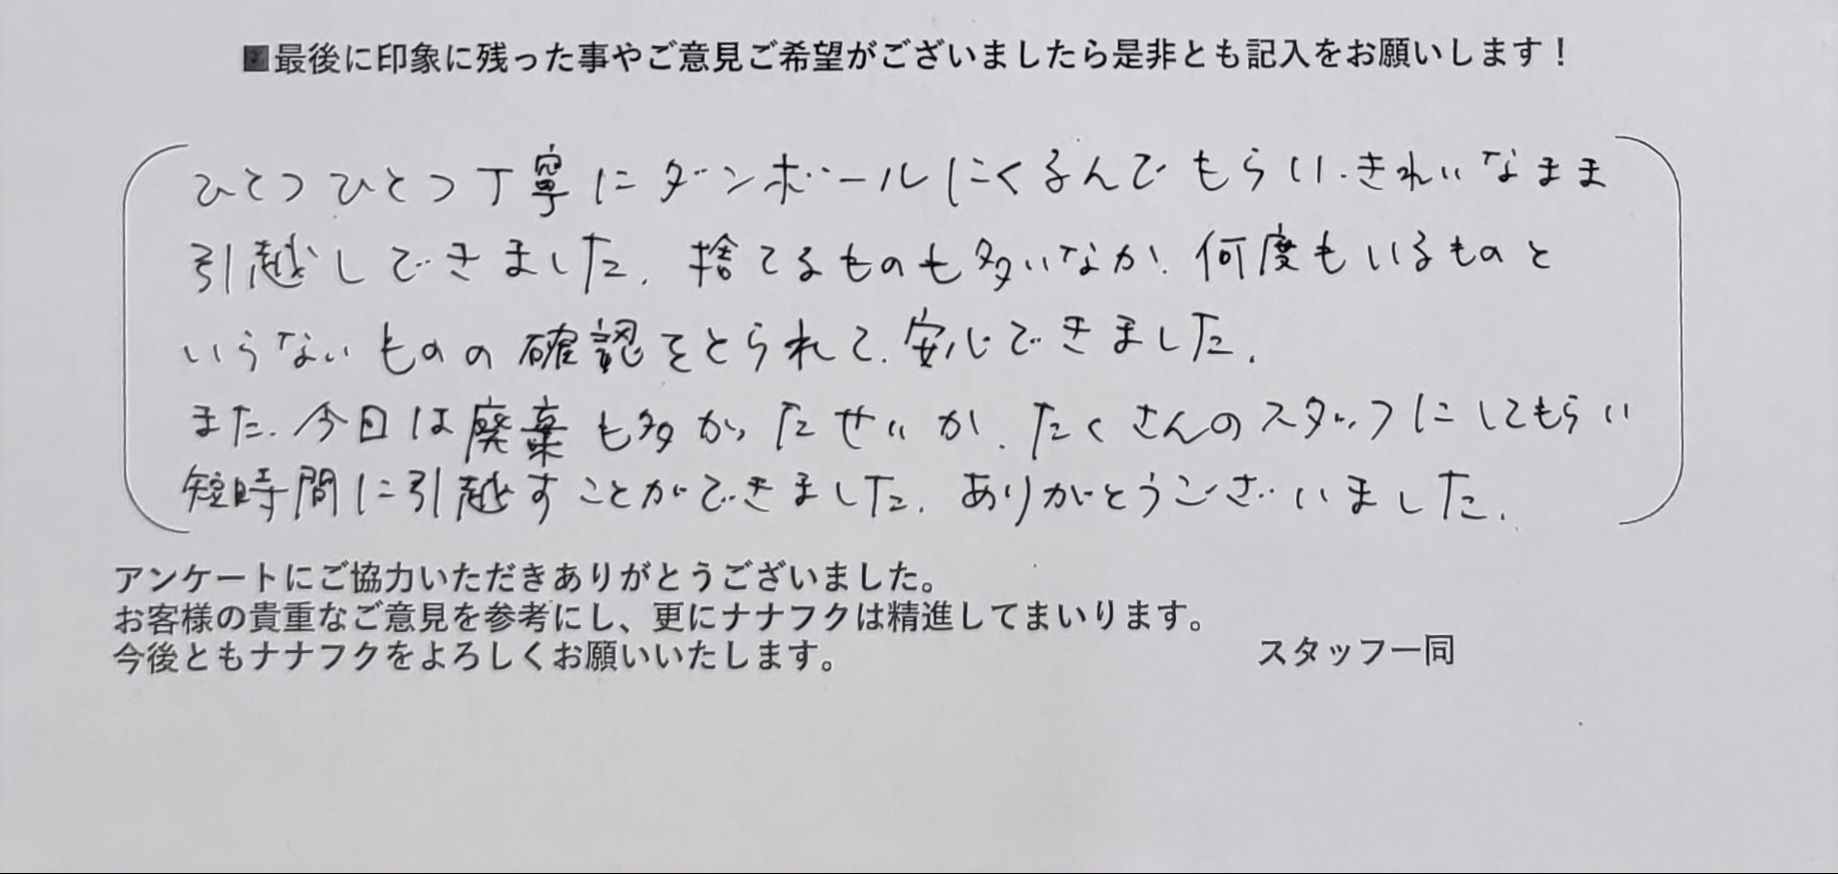 ■最後に印象に残った事やご意見ご希望がございましたら是非とも記入をお願いします！
ひとつひとつ丁寧にダンボールにくるんでもらい、きれいなまま
引越しできました。捨てるものも多いなか、何度もいるものと
いらないものの確認をとられて、安心できました。
また、今日は廃棄も多かったせいか、たくさんのスタッフにしてもらい
短時間に引越すことができました。ありがとうございました。
アンケートにご協力いただきありがとうございました。
お客様の貴重なご意見を参考にし、更にナナフクは精進してまいります。
今後ともナナフクをよろしくお願いいたします。
スタッフ一同